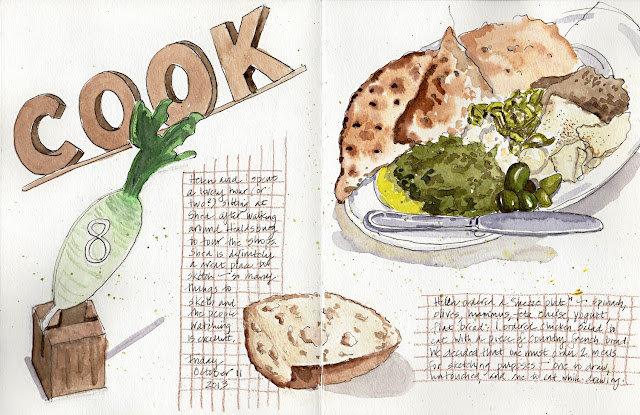 COOK
8
Helen and I spent
a lovely hour (or
two?) sitting at
Shed after walking
around Healdsburg
to tour the shops.
Shed is definitely
a great place to
sketch - so many
things to
sketch and
the people
watching
is excellent.
Friday
October 11
2013
Helen ordered a "mezze plate" - spinach,
olives, hummus, feta cheese yogurt
flat bread. I ordered chicken salad to
eat with a piece of country french bread.
We decided that one must order 2 meals
for sketching purposes - one to draw,
untouched, and one to eat while drawing.